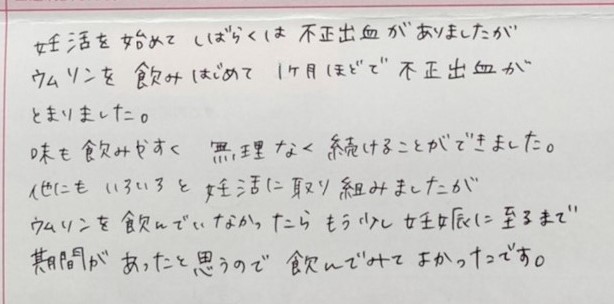 妊活を始めて しばらくは 不正出血がありましたが
ウムリンを 飲みはじめて 1ヶ月ほどで 不正出血が
とまりました。
味も飲みやすく 無理なく続けることができました。
他にも いろいろと 妊活に取り組みましたが
ウムリンを飲んでいなかったら もう少し 妊娠に至るまで
期間が あったと思うので 飲んでみて よかったです。